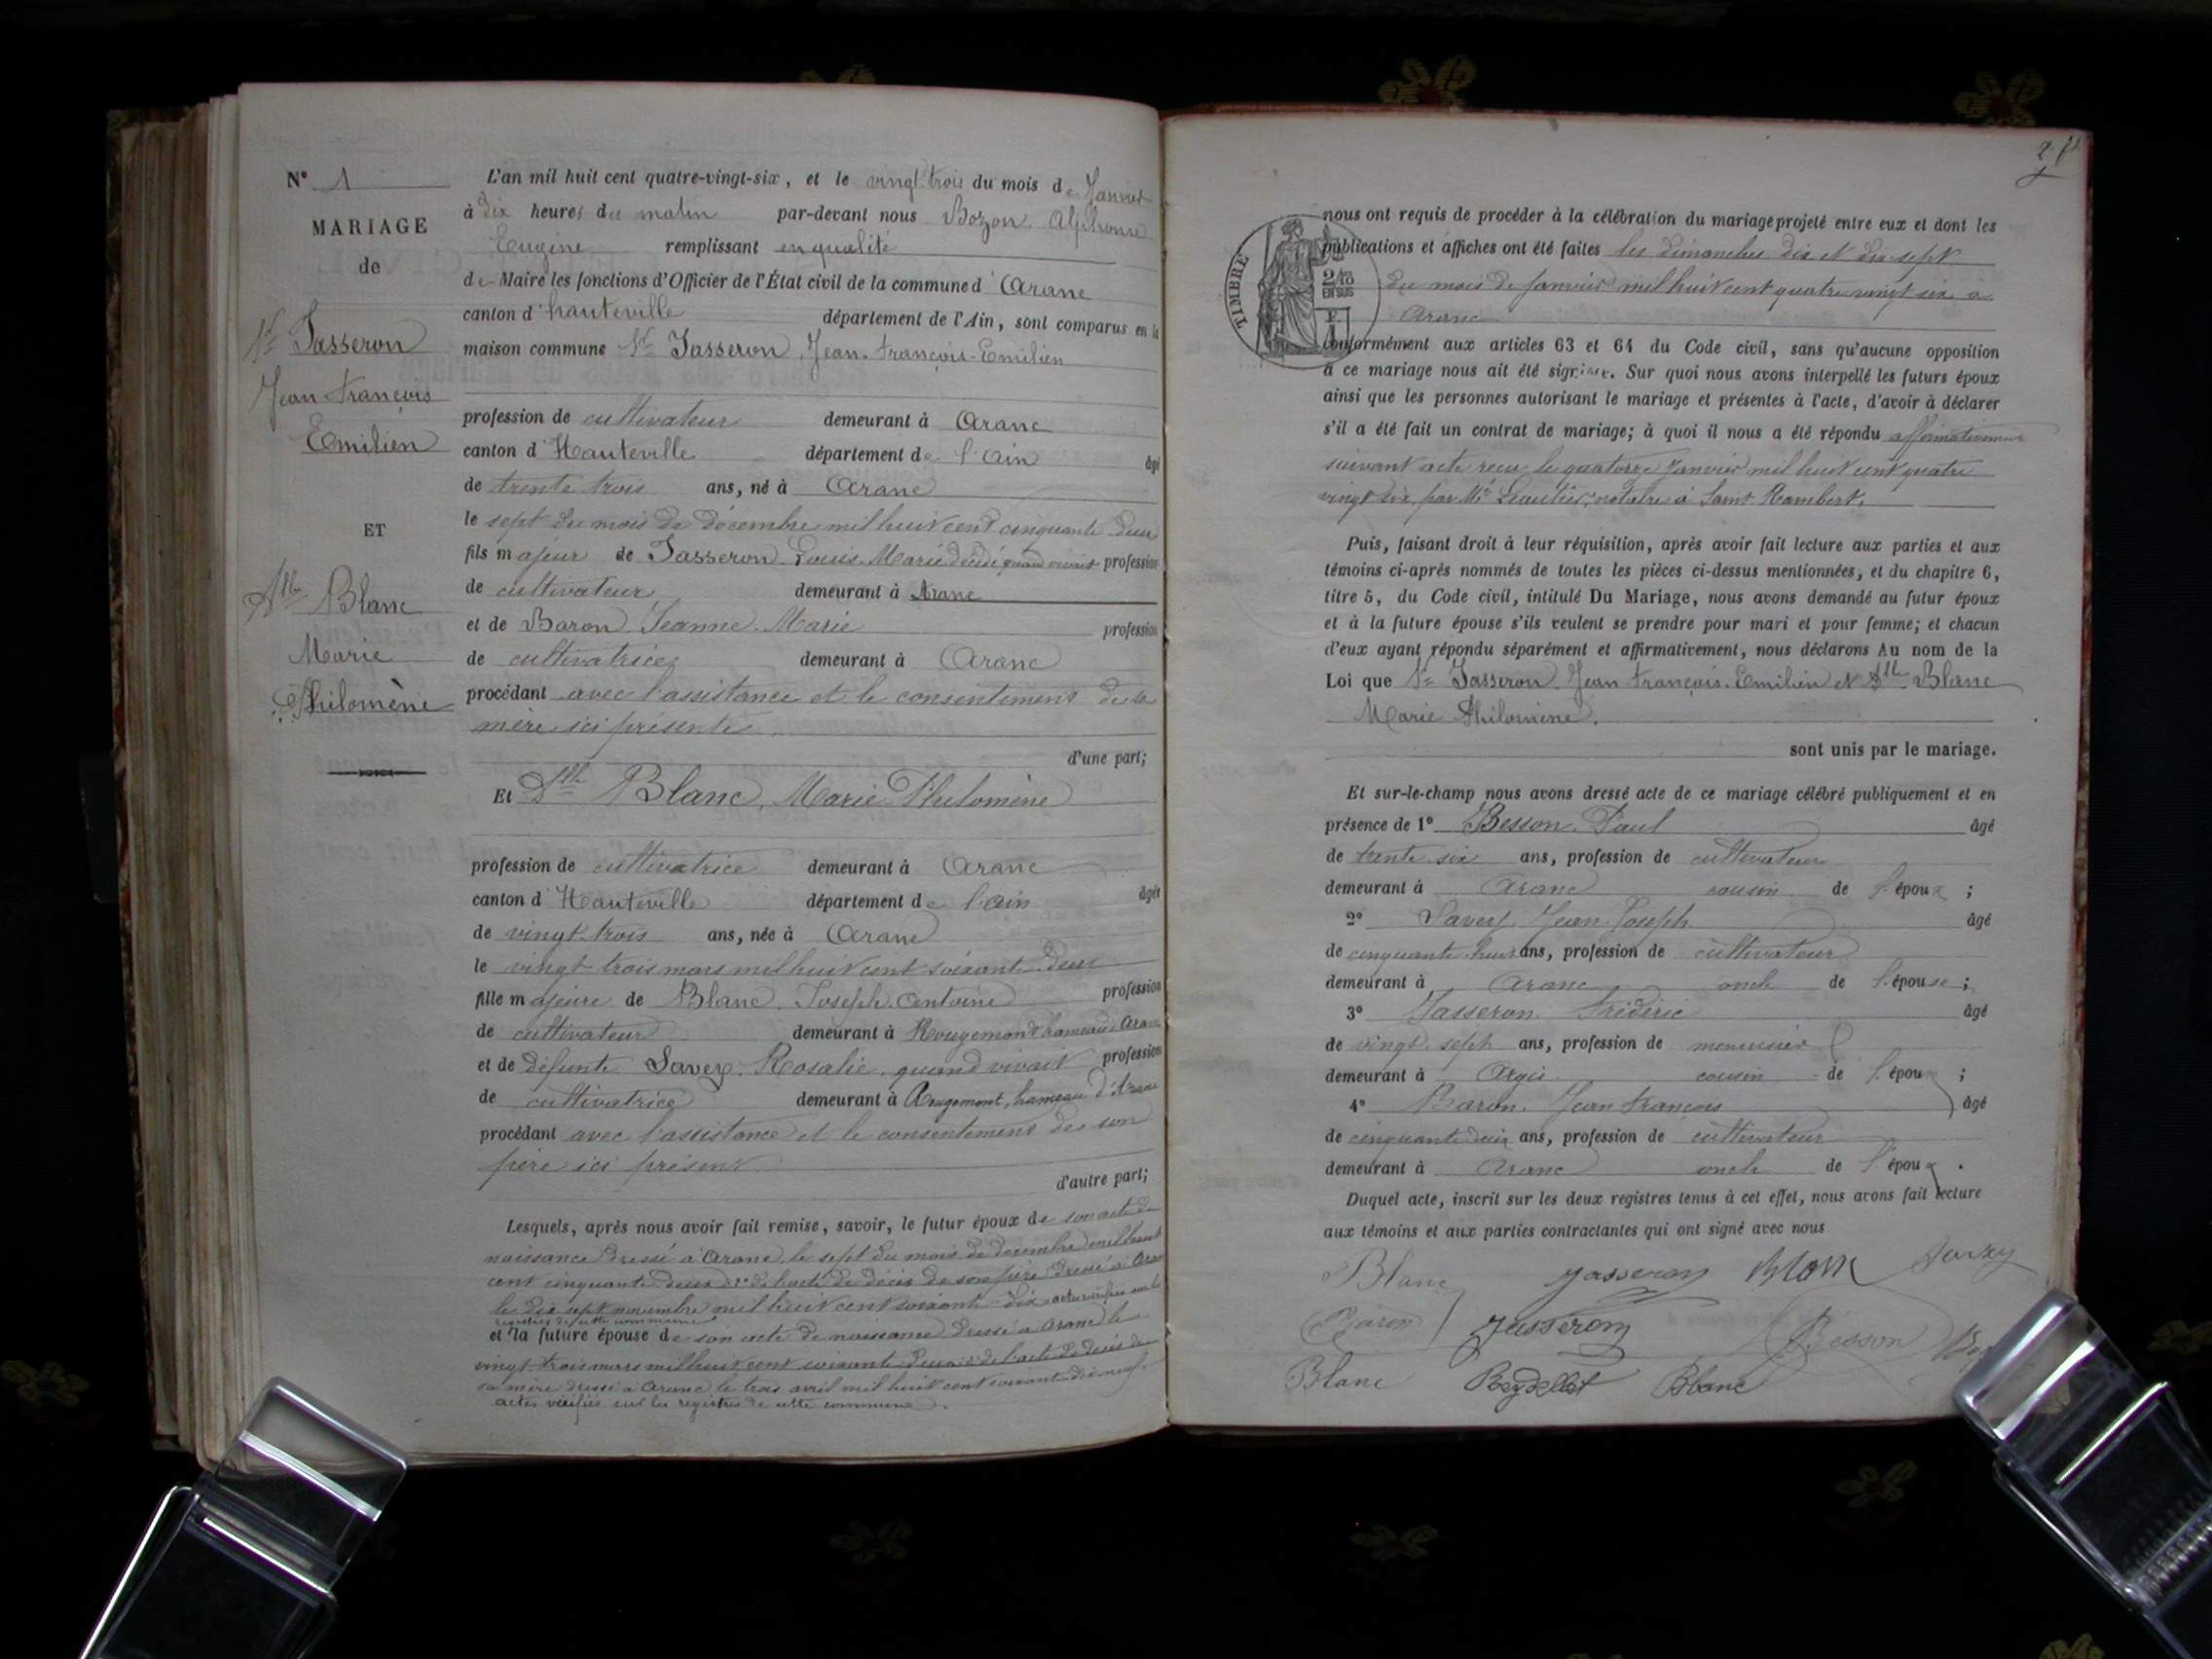 N° 1
MARIAGE
de
Sr Jasseron
Jean François
Emilien
ET
Dlle Blanc
Marie
Philomène
L'an mil huit cent quatre-vingt-six, et le vingt trois du mois de Janvier
à dix heures du matin par-devant nous Bozon Alphonse
Eugène remplissant en qualité
de Maire les fonctions d'Officier de l'État civil de la commune d'Aranc
canton d'hauteville département de l'Ain, sont comparus en la
maison commune Sr Jasseron, Jean-François-Emilien
profession de cultivateur demeurant à Aranc
canton d'Hauteville département de l'Ain âgé
de trente trois ans, né à Aranc
le sept du mois de décembre mil huit cent cinquante deux
fils majeur de Jasseron Louis-Marie décédé quand vivait profession
de cultivateur demeurant à Aranc
et de Baron Jeanne-Marie profession
de cultivatrice demeurant à Aranc
procédant avec l'assistance et le consentement de sa
mère ici présente
d'une part;
Et Dlle Blanc, Marie Philomène
profession de cultivatrice demeurant à Aranc
canton d'Hauteville département de l'Ain âgée
de vingt-trois ans, née à Aranc
le vingt trois mars mil huit cent soixante deux
fille majeure de Blanc Joseph Antoine profession
de cultivateur demeurant à Rougemont hameau Aranc
et de défunte Savey Rosalie, quand vivait profession
de cultivatrice demeurant à Rougemont, hameau d'Aranc
procédant avec l'assistance et le consentement de son
père ici présent
d'autre part;
Lesquels, après nous avoir fait remise, savoir, le futur époux de son acte de
naissance dressé à Aranc, le sept du mois de décembre mil huit
cent cinquante deux 2° de l'acte de décès de son père dressé à Aranc
le dix sept novembre mil huit cent soixante-dix actes vérifiés sur les
registres de cette commune
et la future épouse de son acte de naissance dressé à Aranc le
vingt-trois mars mil huit cent soixante deux 2° de l'acte de décès de
sa mère dressé à Aranc le trois avril mil huit cent soixante-dix-neuf.
actes vérifiés sur les registres de cette commune.
2
TIMBRE
2/10
EN SUS
nous ont requis de procéder à la célébration du mariage projeté entre eux et dont les
publications et affiches ont été faites les dimanches dix et dix-sept
du mois de janvier mil huit cent quatre vingt six à
Aranc
conformément aux articles 63 et 64 du Code civil, sans qu'aucune opposition
à ce mariage nous ait été signifiée. Sur quoi nous avons interpellé les futurs époux
ainsi que les personnes autorisant le mariage et présentes à l'acte, d'avoir à déclarer
s'il a été fait un contrat de mariage; à quoi il nous a été répondu affirmativement
suivant acte reçu le quatorze Janvier mil huit cent quatre
vingt six, par Me notaire à Saint-Rambert.
Puis, faisant droit à leur réquisition, après avoir fait lecture aux parties et aux
témoins ci-après nommés de toutes les pièces ci-dessus mentionnées, et du chapitre 6,
titre 5, du Code civil, intitulé Du Mariage, nous avons demandé au futur époux
et à la future épouse s'ils veulent se prendre pour mari et pour femme; et chacun
d'eux ayant répondu séparément et affirmativement, nous déclarons Au nom de la
Loi que Sr Jasseron Jean-François-Emilien et Dlle Blanc
Marie Philomène.
sont unis par le mariage.
Et sur-le-champ nous avons dressé acte de ce mariage célébré publiquement et en
présence de 1° Besson Paul âgé
de trente-six ans, profession de cultivateur
demeurant à Aranc cousin de l'époux;
2° Savey Jean-Joseph âgé
de cinquante ans, profession de cultivateur
demeurant à Aranc oncle de l'épouse;
3° Jasseron Frédéric âgé
de vingt-sept ans, profession de menuisier
demeurant à Argis cousin de l'époux;
4° Baron Jean François âgé
de cinquante deux ans, profession de cultivateur
demeurant à Aranc oncle de l'époux.
Duquel acte, inscrit sur les deux registres tenus à cet effet, nous avons fait lecture
aux témoins et aux parties contractantes qui ont signé avec nous
Blanc Jasseron Blanc
Baron Jasseron Besson
Blanc Reydellet Blanc